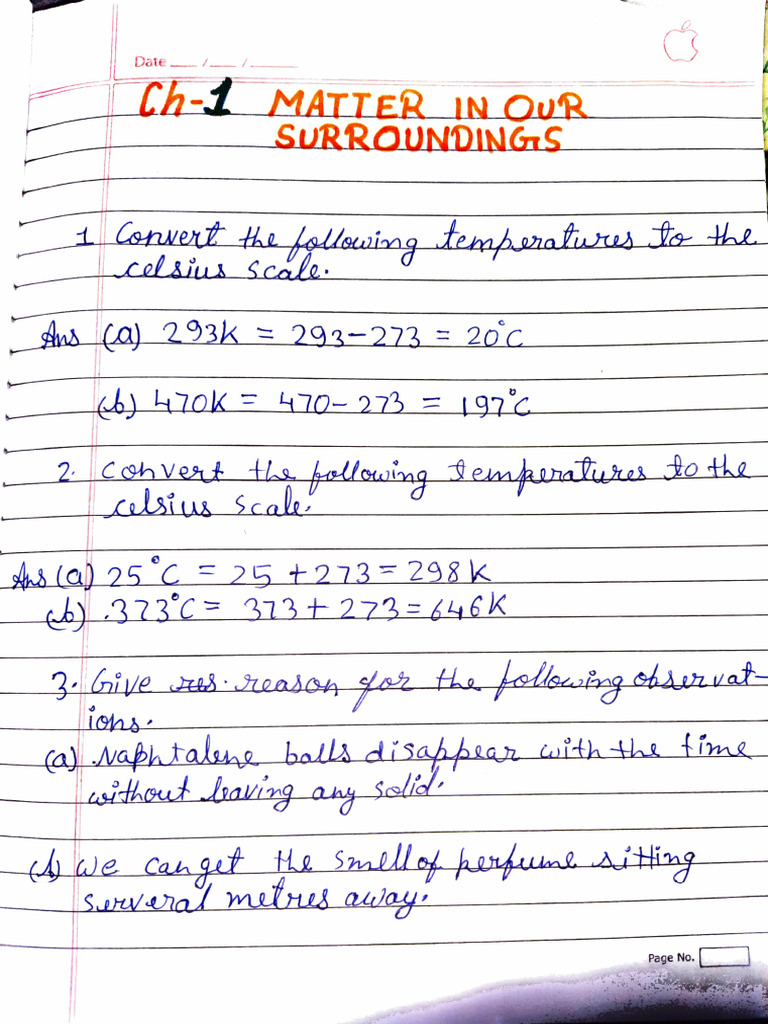 Date ___ / ___ / ___
Ch-1 MATTER IN OUR
SURROUNDINGS
1 Convert the following temperatures to the
celsius scale.
Ans (a) 293K = 293-273 = 20°C
(b) 470K = 470-273 = 197°C
2. Convert the following temperatures to the
celsius scale.
Ans (a) 25°C = 25 + 273 = 298K
(b) .373°C = 373 + 273 = 646K
3. Give reason for the following observat-
ions.
(a) Naphtalene balls disappear with the time
without leaving any solid.
(b) We can get the smell of perfume sitting
serveral metres away.
Page No.